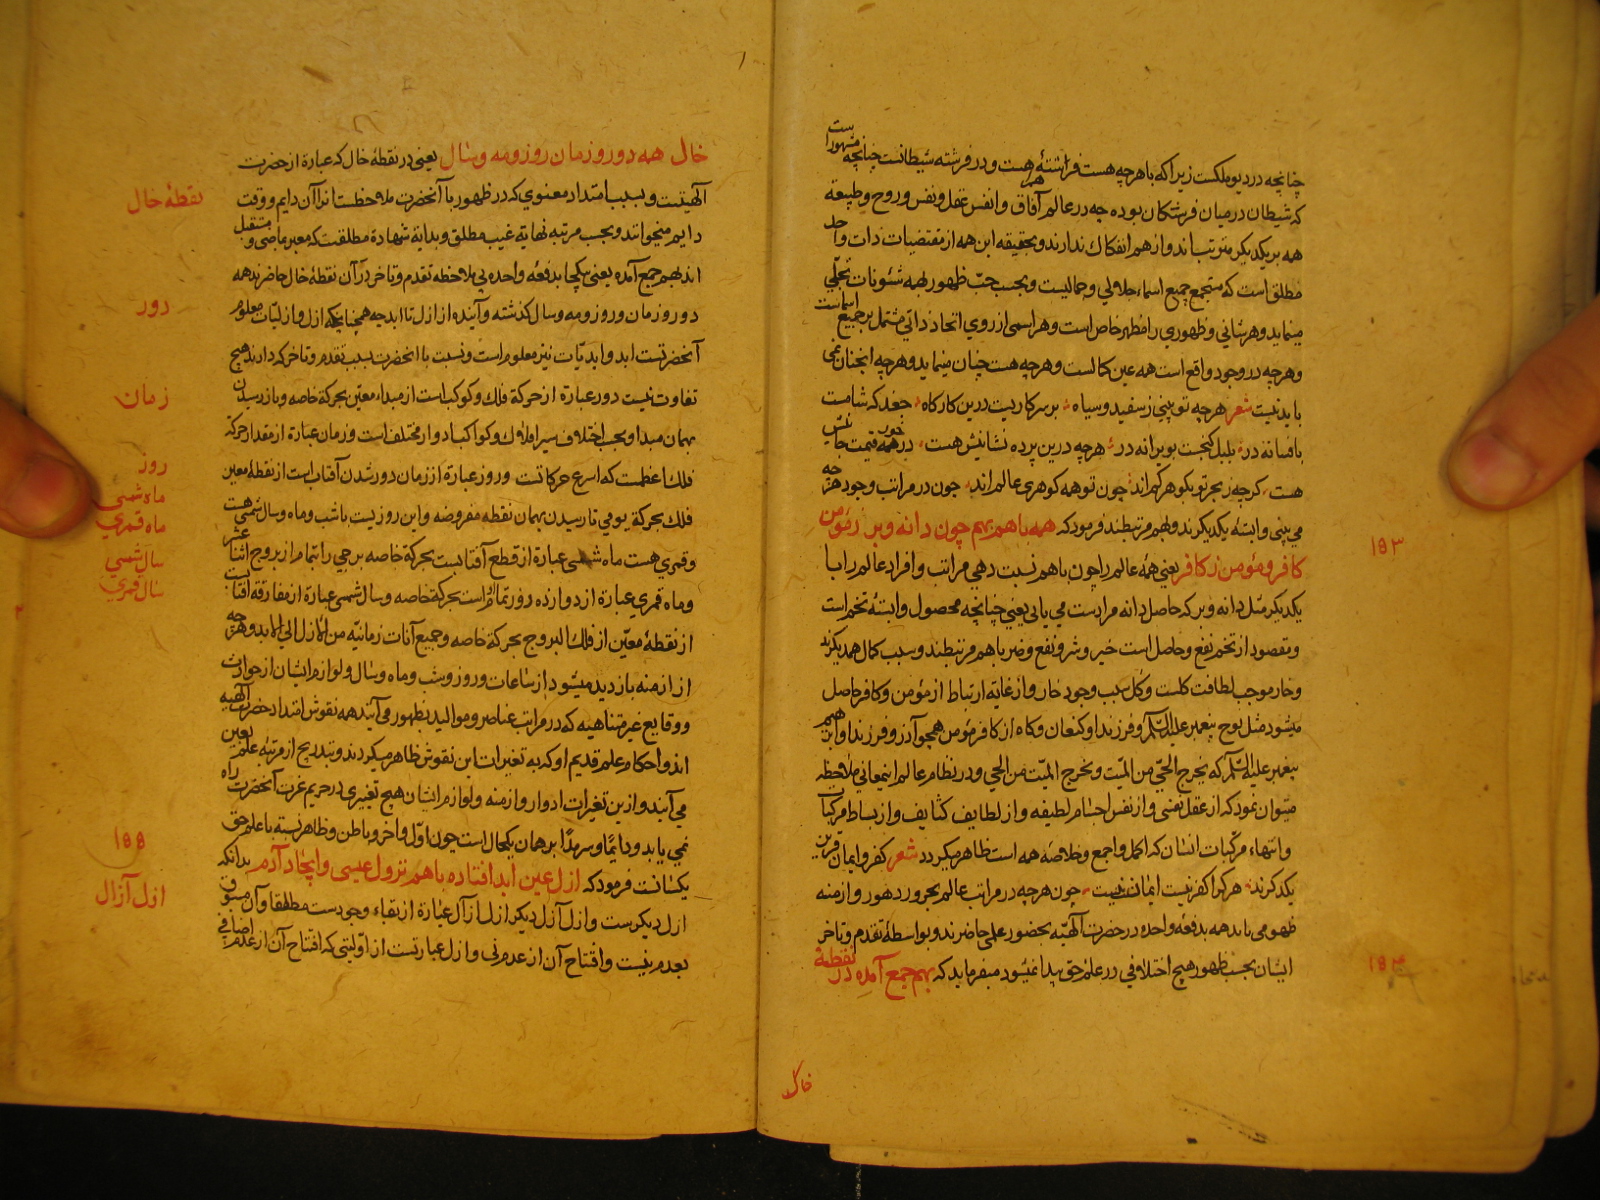 چنانچه در دیو ملکست زیرا که با هرچه هست فرشتهٔ هست و در فرشته شیطانست چنانچه مشهوراست
که شیطان در میان فرشتکان بوده چه در عالم آفاق و انفس عقل و نفس و روح و طبیعة
همه بر یکدیکر مترتب اند و از هم انفکاک ندارند و بحقیقه این همه از مقتضیات ذات واحد
مطلق است که مستجمع جمیع اسماء جلالی و جمالیست و بحسب حبّ ظهور بهمه شئونات تجلّی
مینماید و هر شانی و ظهوری را مظهر خاص است و هر اسمی از روی اتحاد ذاتی مشتمل بر جمیع اسماست
و هرچه در وجود واقع است همه عین کمالست و هرچه هست چنان مینماید و هرچه انچنان نمی
باید نیست شعر هرچه تو بینی ز سفید و سیاه بر سر کاریست درین کارکاه جغد که شامت
بافسانه در بلبل کنجست بویرانه در هرچه درین پرده نشانیش هست در خور همه قیمت جانیش
هست کرچه ز بحر تو بکوهر کم اند چون تو همه کوهری عالم اند چون در مراتب وجود هرچه
می بینی وابستهٔ یکدیکرند و بهم مرتبطند فرمود که همه با هم بهم چون دانه و بر ز مؤمن
کافر و مؤمن ز کافر یعنی همهٔ عالم را چون با هم نسبت دهی مراتب و افراد عالم را با
یکدیکر مثل دانه و بر که حاصل دانه مرادست می یابی یعنی چنانچه محصول وابستهٔ تخم است
و مقصود از تخم نفع و حاصل است خیر و شر و نفع و ضر با هم مرتبطند و سبب کمال همدیکرند
و خار موجب لطافت کلست و کل سبب وجود خار و از غایة ارتباط از مؤمن و کافر حاصل
میشود مثل نوح پیغمبر علیه السّلم و فرزند او کنعان و کاه از کافر مؤمن همچو آذر و فرزند او ابرهیم
پیغمبر علیه السّلم که یخرج الحیّ من المیّت و یخرج المیّت من الحی و در نظام عالم اینمعانی ملاحظه
میتوان نمود که از عقل نفسی و از نفس اجسام لطیفه و از لطایف کثایف و از بسایط مرکبات
و انتهاء مرکبات انسان که اکمل و اجمع و خلاصهٔ همه است ظاهر میکردد شعر کفر و ایمان قرین
یکدکرند هر کرا کفر نیست ایمان نیست چون هرچه در مراتب عالم بمرور دهور و ازمنه
ظهور می یابد همه بدفعهٔ واحده در حضرت آلهیّه بحضور علمی حاضرند و بواسطهٔ تقدم و تاخر
ایشان بحسب ظهور هیچ اختلافی در علم حق پیدا نمیشود میفرماید که بهم جمع آمده در نقطهٔ
خال
١٥٣
١٥٤
خال همه دور و زمان روز و مه و سال یعنی در نقطهٔ خال که عبارة از حضرت
آلهیتست و بسبب امتداد معنوی که در ظهور با آنحضرت ملاحظست انرا آن دایم و وقت
دایم میخوانند و بحسب مرتبه نهایة غیب مطلق و بدایة شهادة مطلقست که معبر بماضی و مستقبل
اند بهم جمع آمده یعنی یکجا بدفعهٔ واحده بی ملاحظه تقدم و تاخر در آن نقطهٔ خال حاضرند همه
دور و زمان و روز و مه و سال کذشته و آینده از ازل تا ابد چه همچنانچه ازل و ازلیّات معلوم
آنحضرتست ابد و ابدیّات نیز معلوم است و نسبت با آنحضرت بسبب تقدم و تاخر که دارند هیچ
تفاوت نیست دور عبارة از حرکة فلک و کوکب است از مبداء معیّن بحرکة خاصه و باز رسیدن
بهمان مبدا و بحسب اختلاف سیر افلاک و کواکب ادوار مختلف است و زمان عبارة از مقدار حرکة
فلک اعظمست که اسرع حرکاتست و روز عبارة از زمان دور شدن آفتاب است از نقطهٔ معین
فلک بحرکة یومی تا رسیدن بهمان نقطه مفروضه و این روزیست باشب و ماه و سال شمسی هست
و قمری هست ماه شمسی عبارة از قطع آفتابست بحرکة خاصه برجی را بتمام از بروج اثنا عشر
و ماه قمری عبارة از دوازده دور تمام قمر است بحرکة خاصه و سال شمسی عبارة از مفارقة افتابست
از نقطهٔ معیّن از فلک البروج بحرکة خاصه و جمیع آنات زمانیّه من الازل الی الابد و هرچه
از ازمنه بازدید میشود از ساعات و روز و شب و ماه و سال و لوازم ایشان از حوادث
و وقایع غیر متناهیه که در مراتب عناصر و موالید بظهور می آیند همه نقوش امتداد حضرت الهیه
اند و احکام علم قدیم او که به تغیرات این نقوش ظاهر میکردند و بتدریج از مرتبهٔ علم بعین
می آیند و ازین تغیرات ادوار و ازمنه و لوازم ایشان هیچ تغییری در حریم عزت آنحضرت راه
نمی یابد و دایمًا و سرمدًا بر همان یکحال است چون اوّل و آخر و باطن و ظاهر نسبة با علم حق
یکسانست فرمود که ازل عین ابد افتاده با هم نزول عیسی و ایجاد آدم بدانکه
ازل دیکرست و ازل آزل دیکر ازل آزال عبارة از بقاء وجودست مطلقا و آن مسبوق
بعدم نیست و افتتاح آن از عدم نی و ازل عبارتست از اولیّتی که افتتاح آن از عدم اضافی
نقطهٔ خال
دور
زمان
روز
ماه شمسی
ماه قمری
سال شمسی
سال قمری
١٥٥
ازل آزال